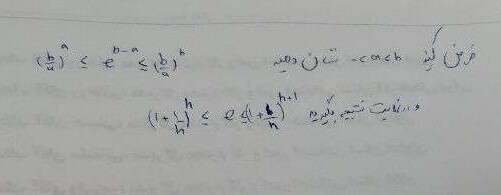 فرض کنید 0<a<b نشان دهید (b/a)^a ≤ e^(b-a) ≤ (b/a)^b
و در نهایت نتیجه بگیرید (1+1/n)^n ≤ e ≤ (1+1/n)^(n+1)